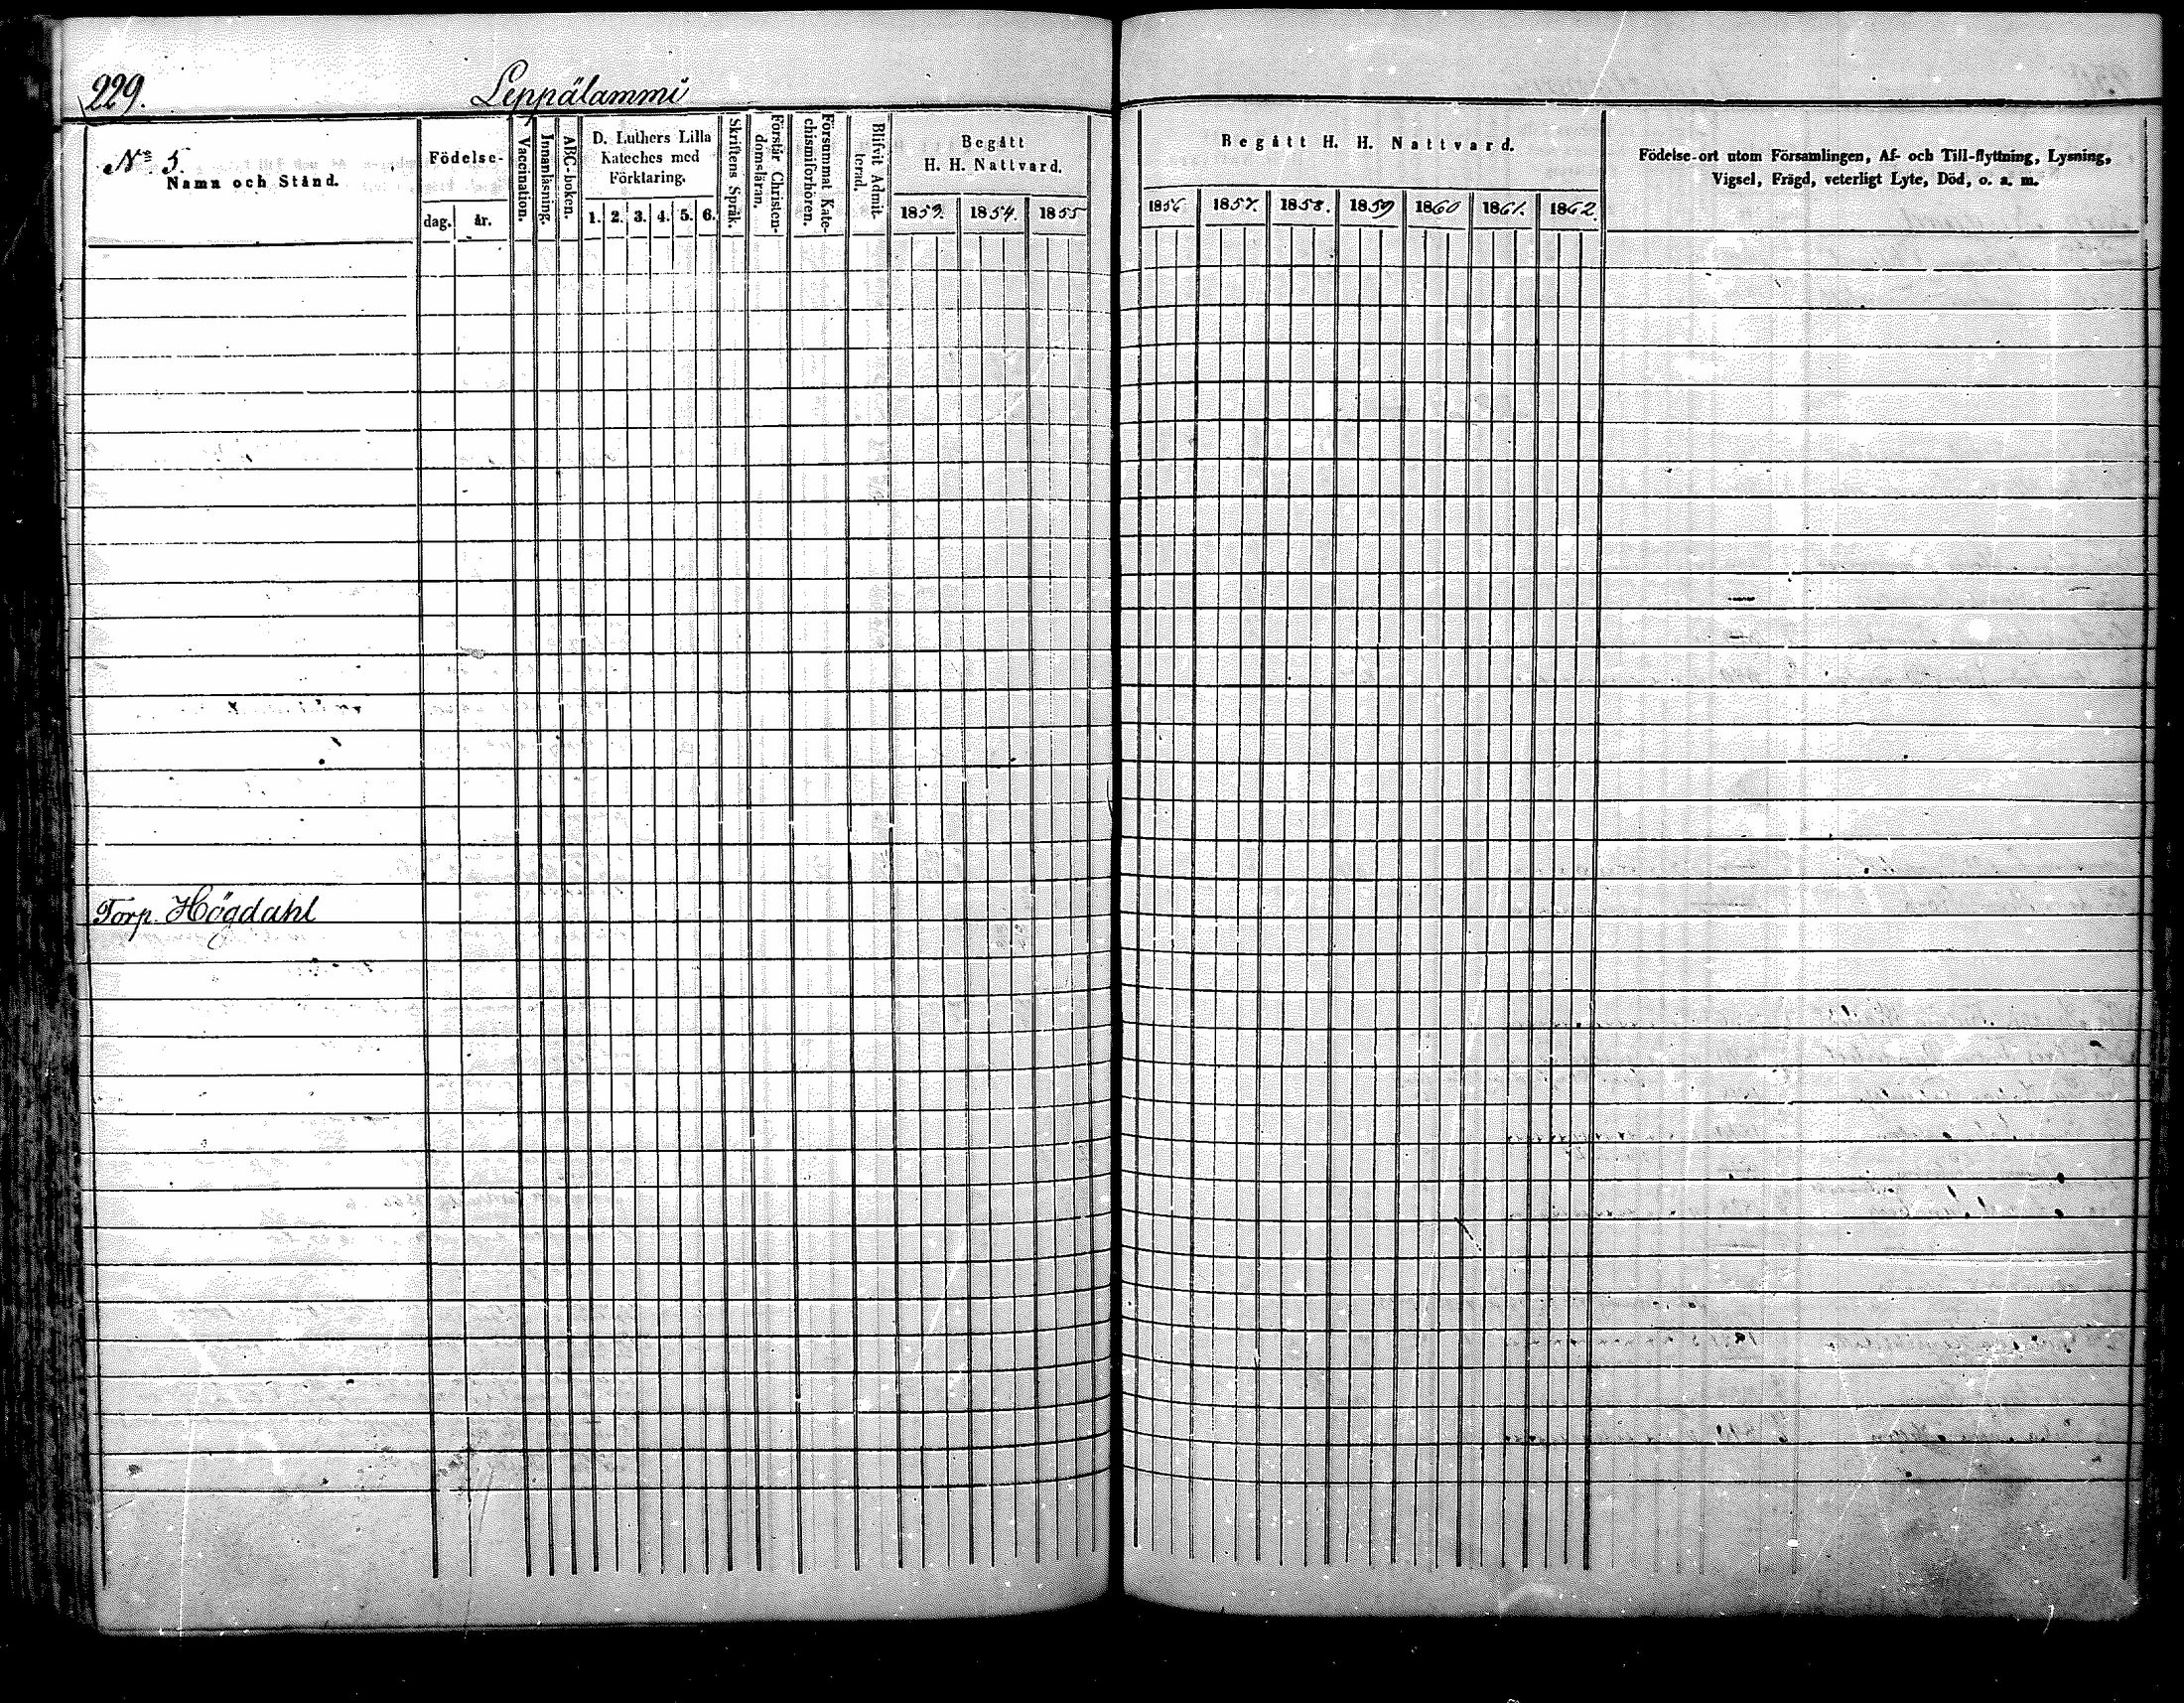 229. Leppälammi
Nº 5.
Namn och Stånd.
Födelse-
dag. år.
Vaccination.
Innanläsning.
ABC-boken.
D. Luthers Lilla
Kateches med
Förklaring.
1. 2. 3. 4. 5. 6.
Skriftens Språk.
Förstår Christen-
domsläran.
Försummat Kate-
chismiförhören.
Blifvit Admit-
terad.
Begått
H. H. Nattvard.
1853. 1854. 1855
Begått H. H. Nattvard.
1856. 1857. 1858. 1859 1860 1861. 1862.
Födelse-ort utom Församlingen, Af- och Till-flyttning, Lysning,
Vigsel, Frägd, veterligt Lyte, Död, o. s. m.
Torp. Högdahl